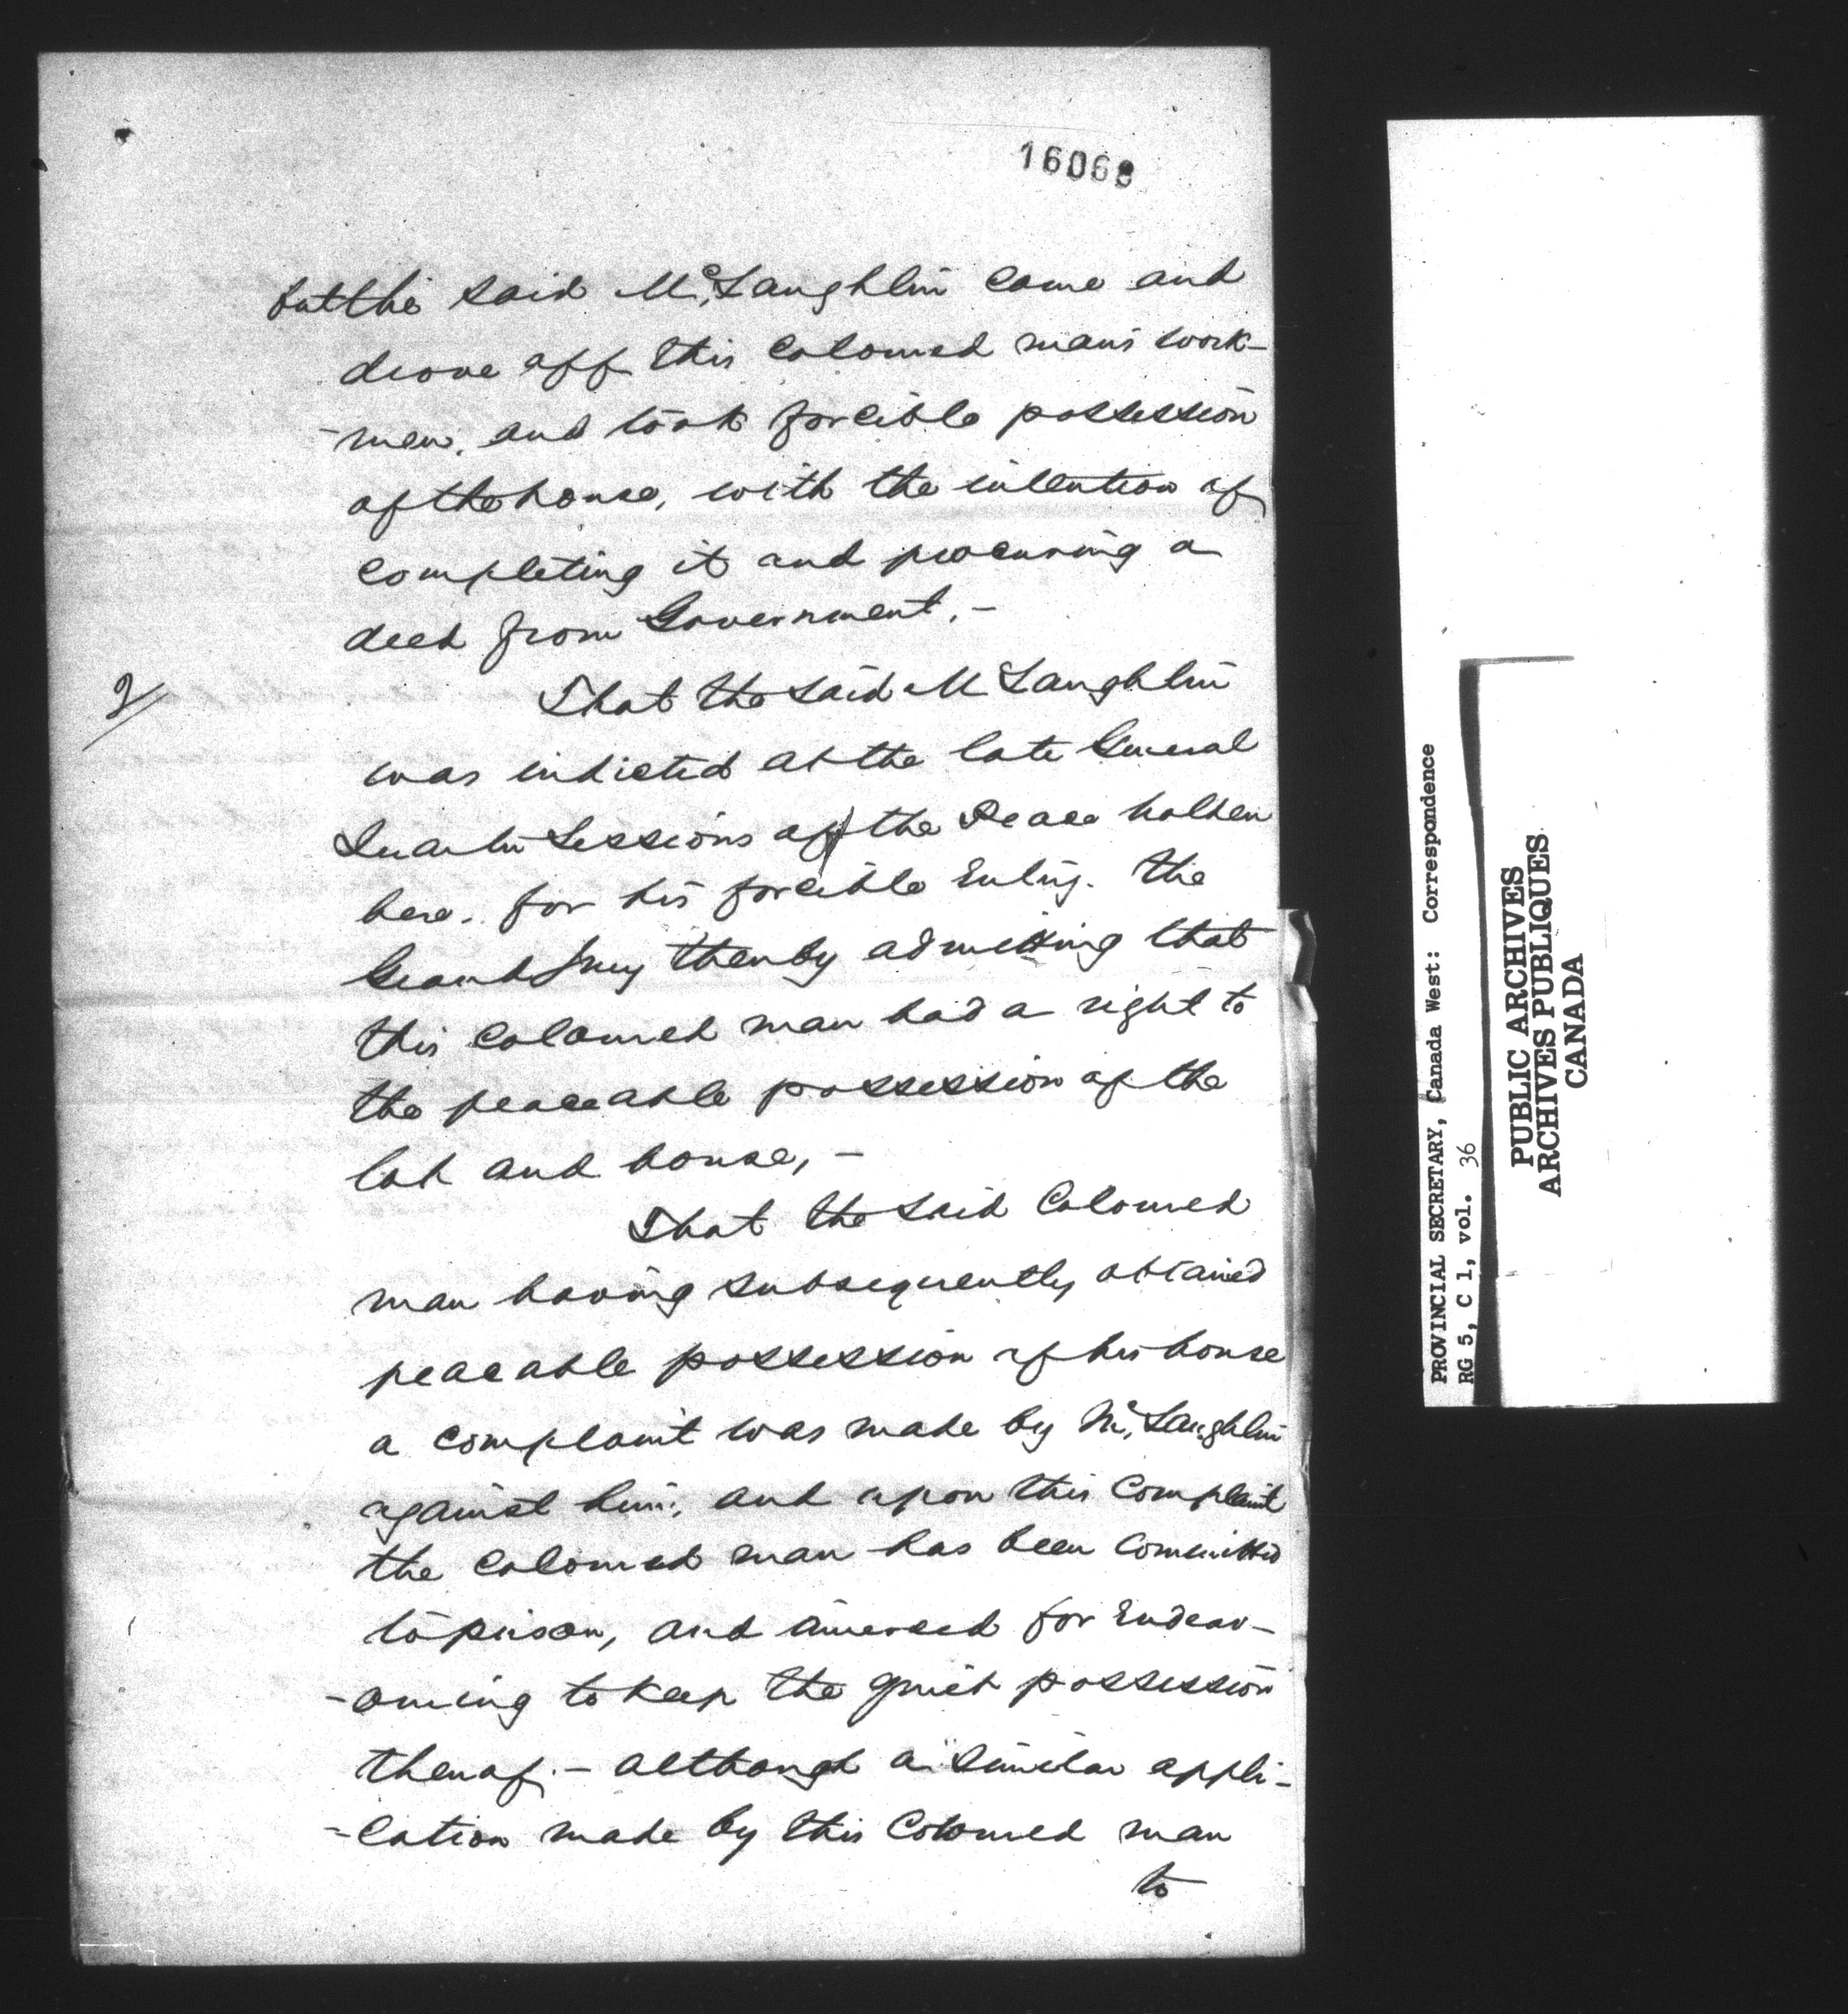 16068
but the said McLaughlin came and
drove off this Coloured man's work-
-men, and took forcible possession
of the house, with the intention of
completing it and procuring a
deed from Government. -
2/
That the said McLaughlin
was indicted at the late General
Quarter Sessions of the Peace holden
here. for his forcible Entry. The
Grand Jury thereby admitting that
this coloured man had a right to
the peaceable possession of the
lot and house, -
That the said Coloured
man having subsequently obtained
peaceable possession of his house
a complaint was made by McLaughlin
against him; and upon this Complaint
the coloured man has been Committed
to prison, and amerced for Endeav-
-ouring to keep the quiet possession
thereof. - although a similar appli-
-cation made by this Coloured man
to
PROVINCIAL SECRETARY, Canada West: Correspondence
RG 5, C 1, vol. 36
PUBLIC ARCHIVES
ARCHIVES PUBLIQUES
CANADA